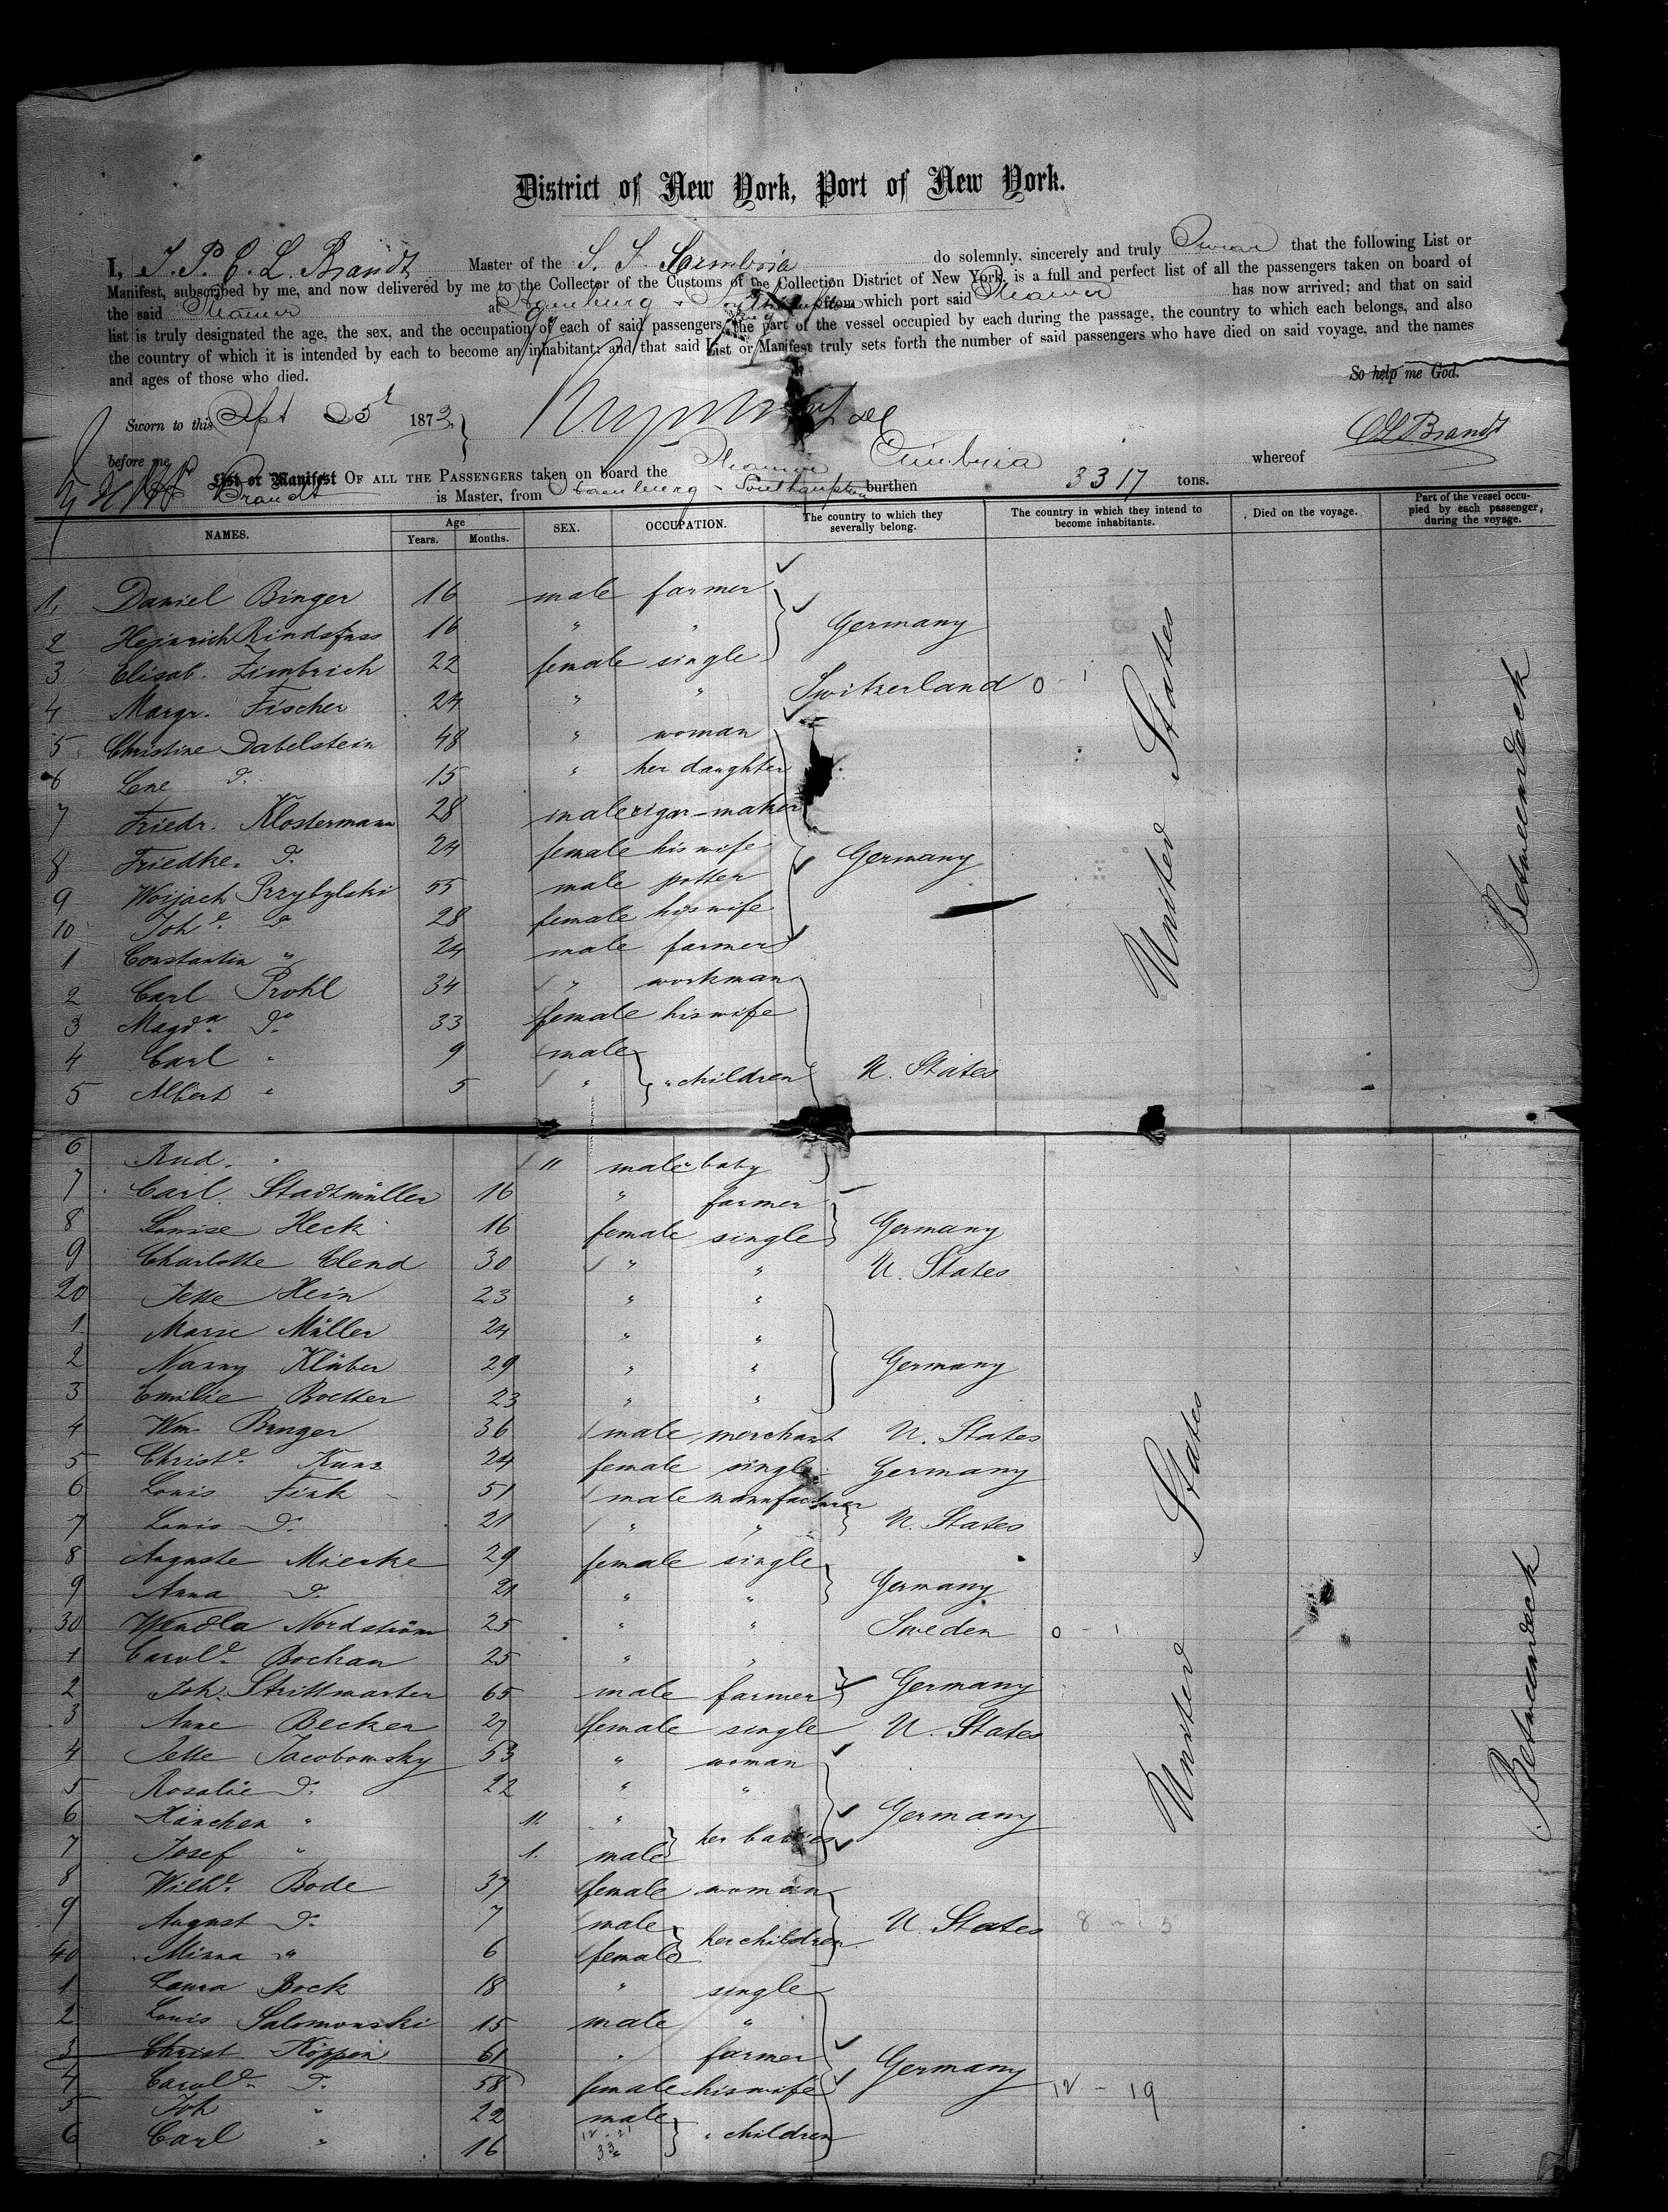 District of New York, Port of New York.
I, J. P. C. L. Brandt Master of the S. S. Cimbria do solemnly, sincerely and truly Swear that the following List or
Manifest, subscribed by me, and now delivered by me to the Collector of the Customs of the Collection District of New York, is a full and perfect list of all the passengers taken on board of
the said Steamer at Hamburg & Southampton from which port said Steamer has now arrived; and that on said
list is truly designated the age, the sex, and the occupation of each of said passengers, the part of the vessel occupied by each during the passage, the country to which each belongs, and also
the country of which it is intended by each to become an inhabitant; and that said List or Manifest truly sets forth the number of said passengers who have died on said voyage, and the names
and ages of those who died.
So help me God.
Sworn to this Sept 25 1873
before me
Brandt
List or Manifest OF ALL THE PASSENGERS taken on board the Steamer Cimbria whereof
Brandt is Master, from Hamburg - Southampton burthen 3317 tons.
NAMES. Age Years. Months. SEX. OCCUPATION. The country to which they severally belong. The country in which they intend to become inhabitants. Died on the voyage. Part of the vessel occupied by each passenger, during the voyage.
1, Daniel Binger 16 male farmer
2 Heinrich Rindsfuss 16 " " Germany
3 Elisab. Zimbrich 22 female single
4 Margr. Fischer 24 " " Switzerland 0 - 1
5 Christine Dabelstein 48 " woman
6 Lene Do. 15 " her daughter
7 Friedr. Klostermann 28 male cigar-maker
8 Friedke. Do. 24 female his wife Germany
9 Woijach Przybylski 55 male potter
10 Johe. Do 28 female his wife
1 Constantin " 24 male farmer
2 Carl Prohl 34 " workman
3 Magdn. Do 33 female his wife
4 Carl " 9 male
5 Albert " 5 " " children U. States
United States
Betweendeck
6 Rud. " 11 male " baby
7 Carl Stadtmüller 16 " farmer
8 Louise Heck 16 female single Germany
9 Charlotte Clend 30 " " U. States
20 Jette Hein 23 " "
1 Marie Müller 24 " "
2 Nanny Klüber 29 " " Germany
3 Emilie Boetter 23 " "
4 Wm Binger 36 male merchant U. States
5 Christe. Kunz 24 female single Germany
6 Louis Fink 51 male manufacturer
7 Louis Do. 21 " " U. States
8 Auguste Mienke 29 female single
9 Anna Do. 21 " " Germany
30 Wendla Nordström 25 " " Sweden 0 - 1
1 Carole. Bochan 25 " "
2 Joh. Strittmatter 65 male farmer Germany
3 Anne Becker 27 female single U. States
4 Jette Jacobowsky 53 " woman
5 Rosalie Do. 22 " "
6 Hänchen " 11 " Germany
7 Josef " 1. male her babies
8 Wilhe. Bode 37 female woman
9 August Do. 7 male U. States 8 - 15
40 Minna " 6 female her children
1 Laura Bock 18 " single
2 Louis Salomonski 15 male "
3 Christ. Köppen 61 " farmer Germany
4 Carole. Do. 58 female his wife 12 - 19
5 Joh " 22 male
6 Carl " 16 " children
United States
Betweendeck